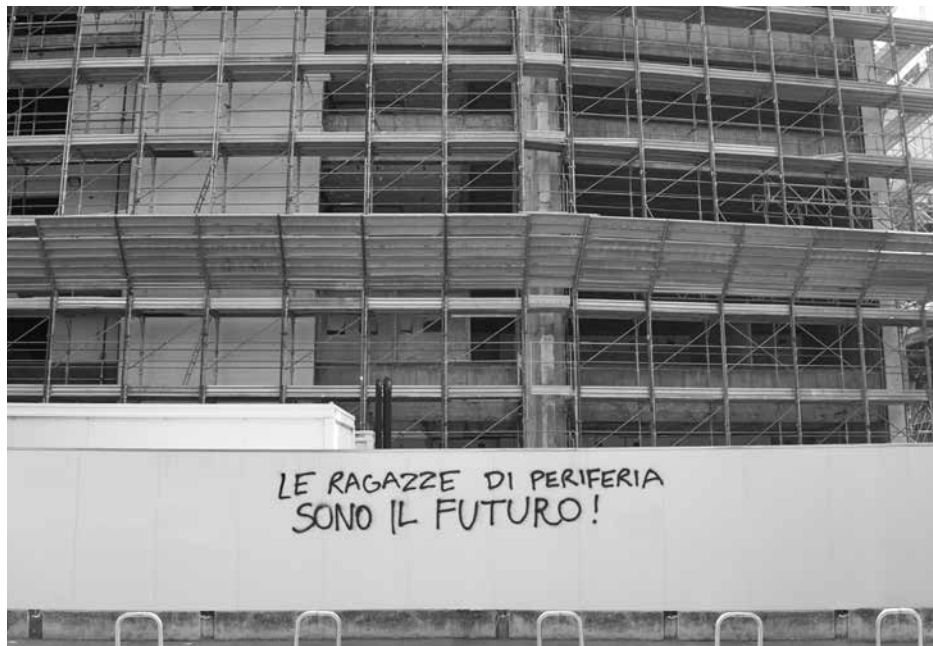 LE RAGAZZE DI PERIFERIA
SONO IL FUTURO!